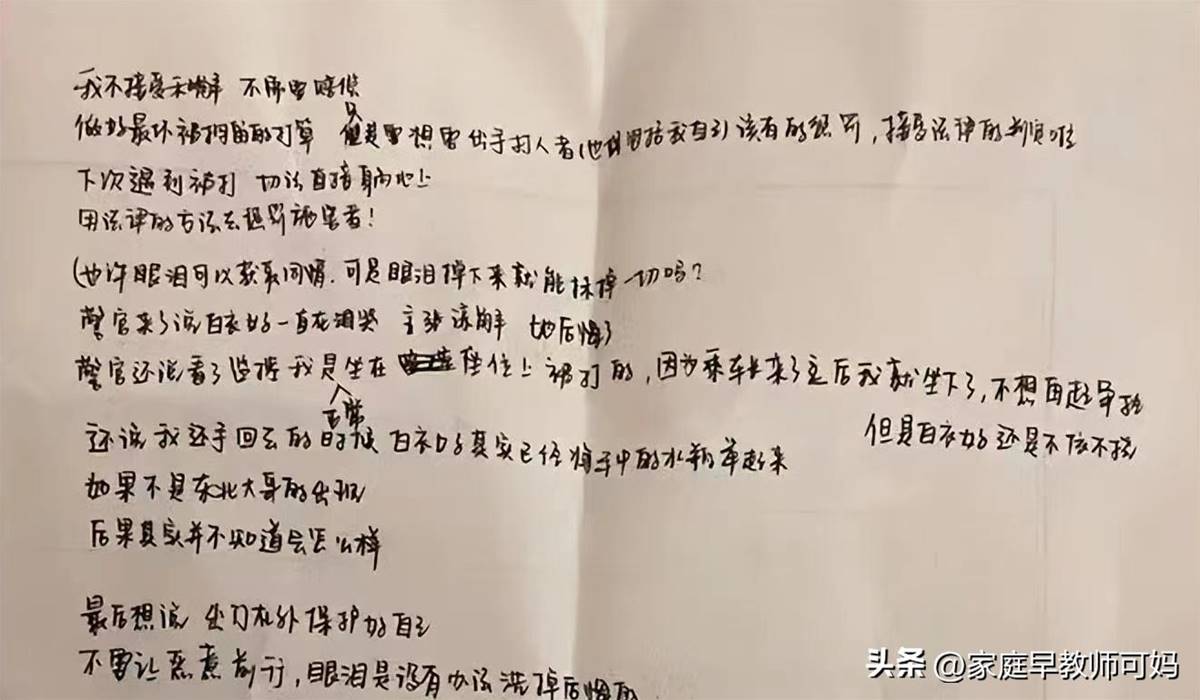 我不接受和解 不需要赔偿
做好最坏被拘留的打算 但是只要想要出手打人者(也包括我自己)该有的惩罚,接受法律的判责
下次遇到被打 切记直接躺地上
用法律的方法去惩罚施害者!
(也许眼泪可以获取同情.可是眼泪掉下来就能抹掉一切吗?
警官来了说白衣女一直在泪哭 主张谅解 她后悔了
警官还说看了监控我是坐在座位上被打的,因为乘车长来了之后我就坐下了,不想再起争执
但是白衣女还是不依不挠
还说我还手回去的时候 白衣女其实已经将手中的水瓶举起来
正常
如果不是东北大哥的出现
后果其实并不知道会怎么样
最后想说 出门在外保护好自己
不要让恶意前行,眼泪是没有办法洗掉后悔的
头条 @家庭早教师可妈